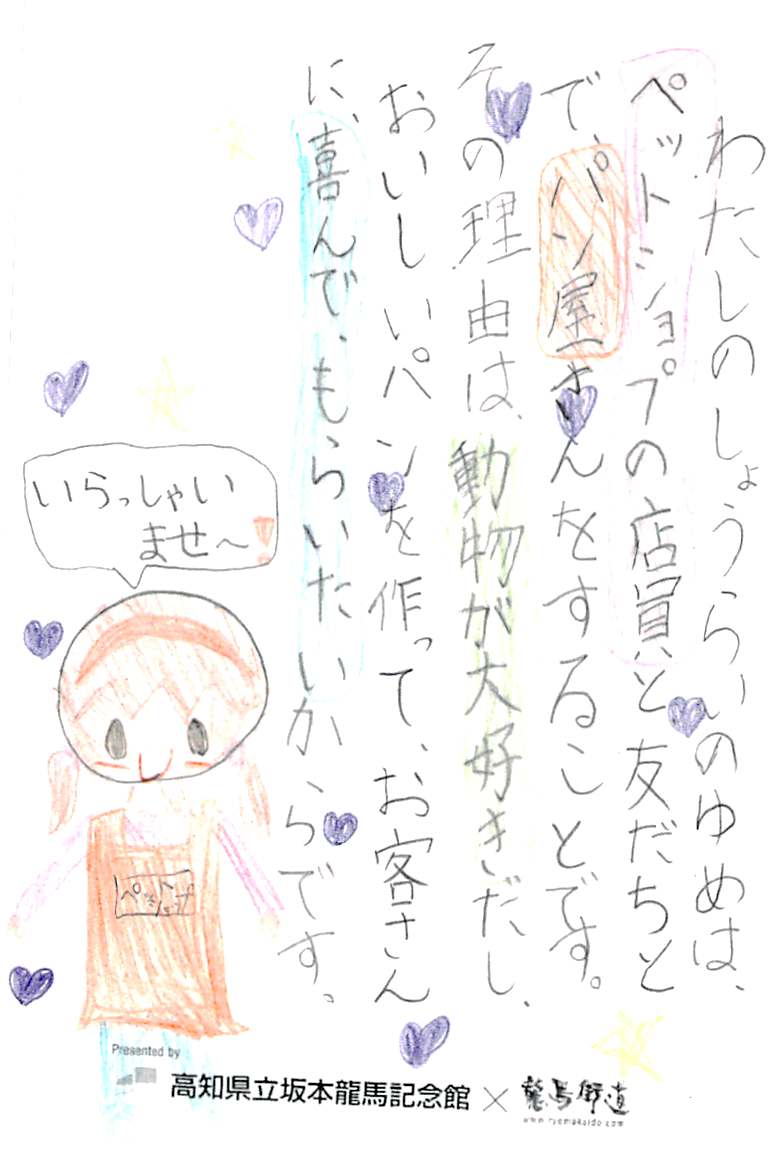 わたしのしょうらいのゆめは、
ペットショップの店員と友だちと
で、パン屋さんをすることです。
その理由は、動物が大好きだし、
おいしいパンを作って、お客さん
に、喜んで、もらいたいからです。
いらっしゃい
ませ〜!
ペットショップ
Presented by
高知県立坂本龍馬記念館×龍馬街道
www.ryomakaido.com